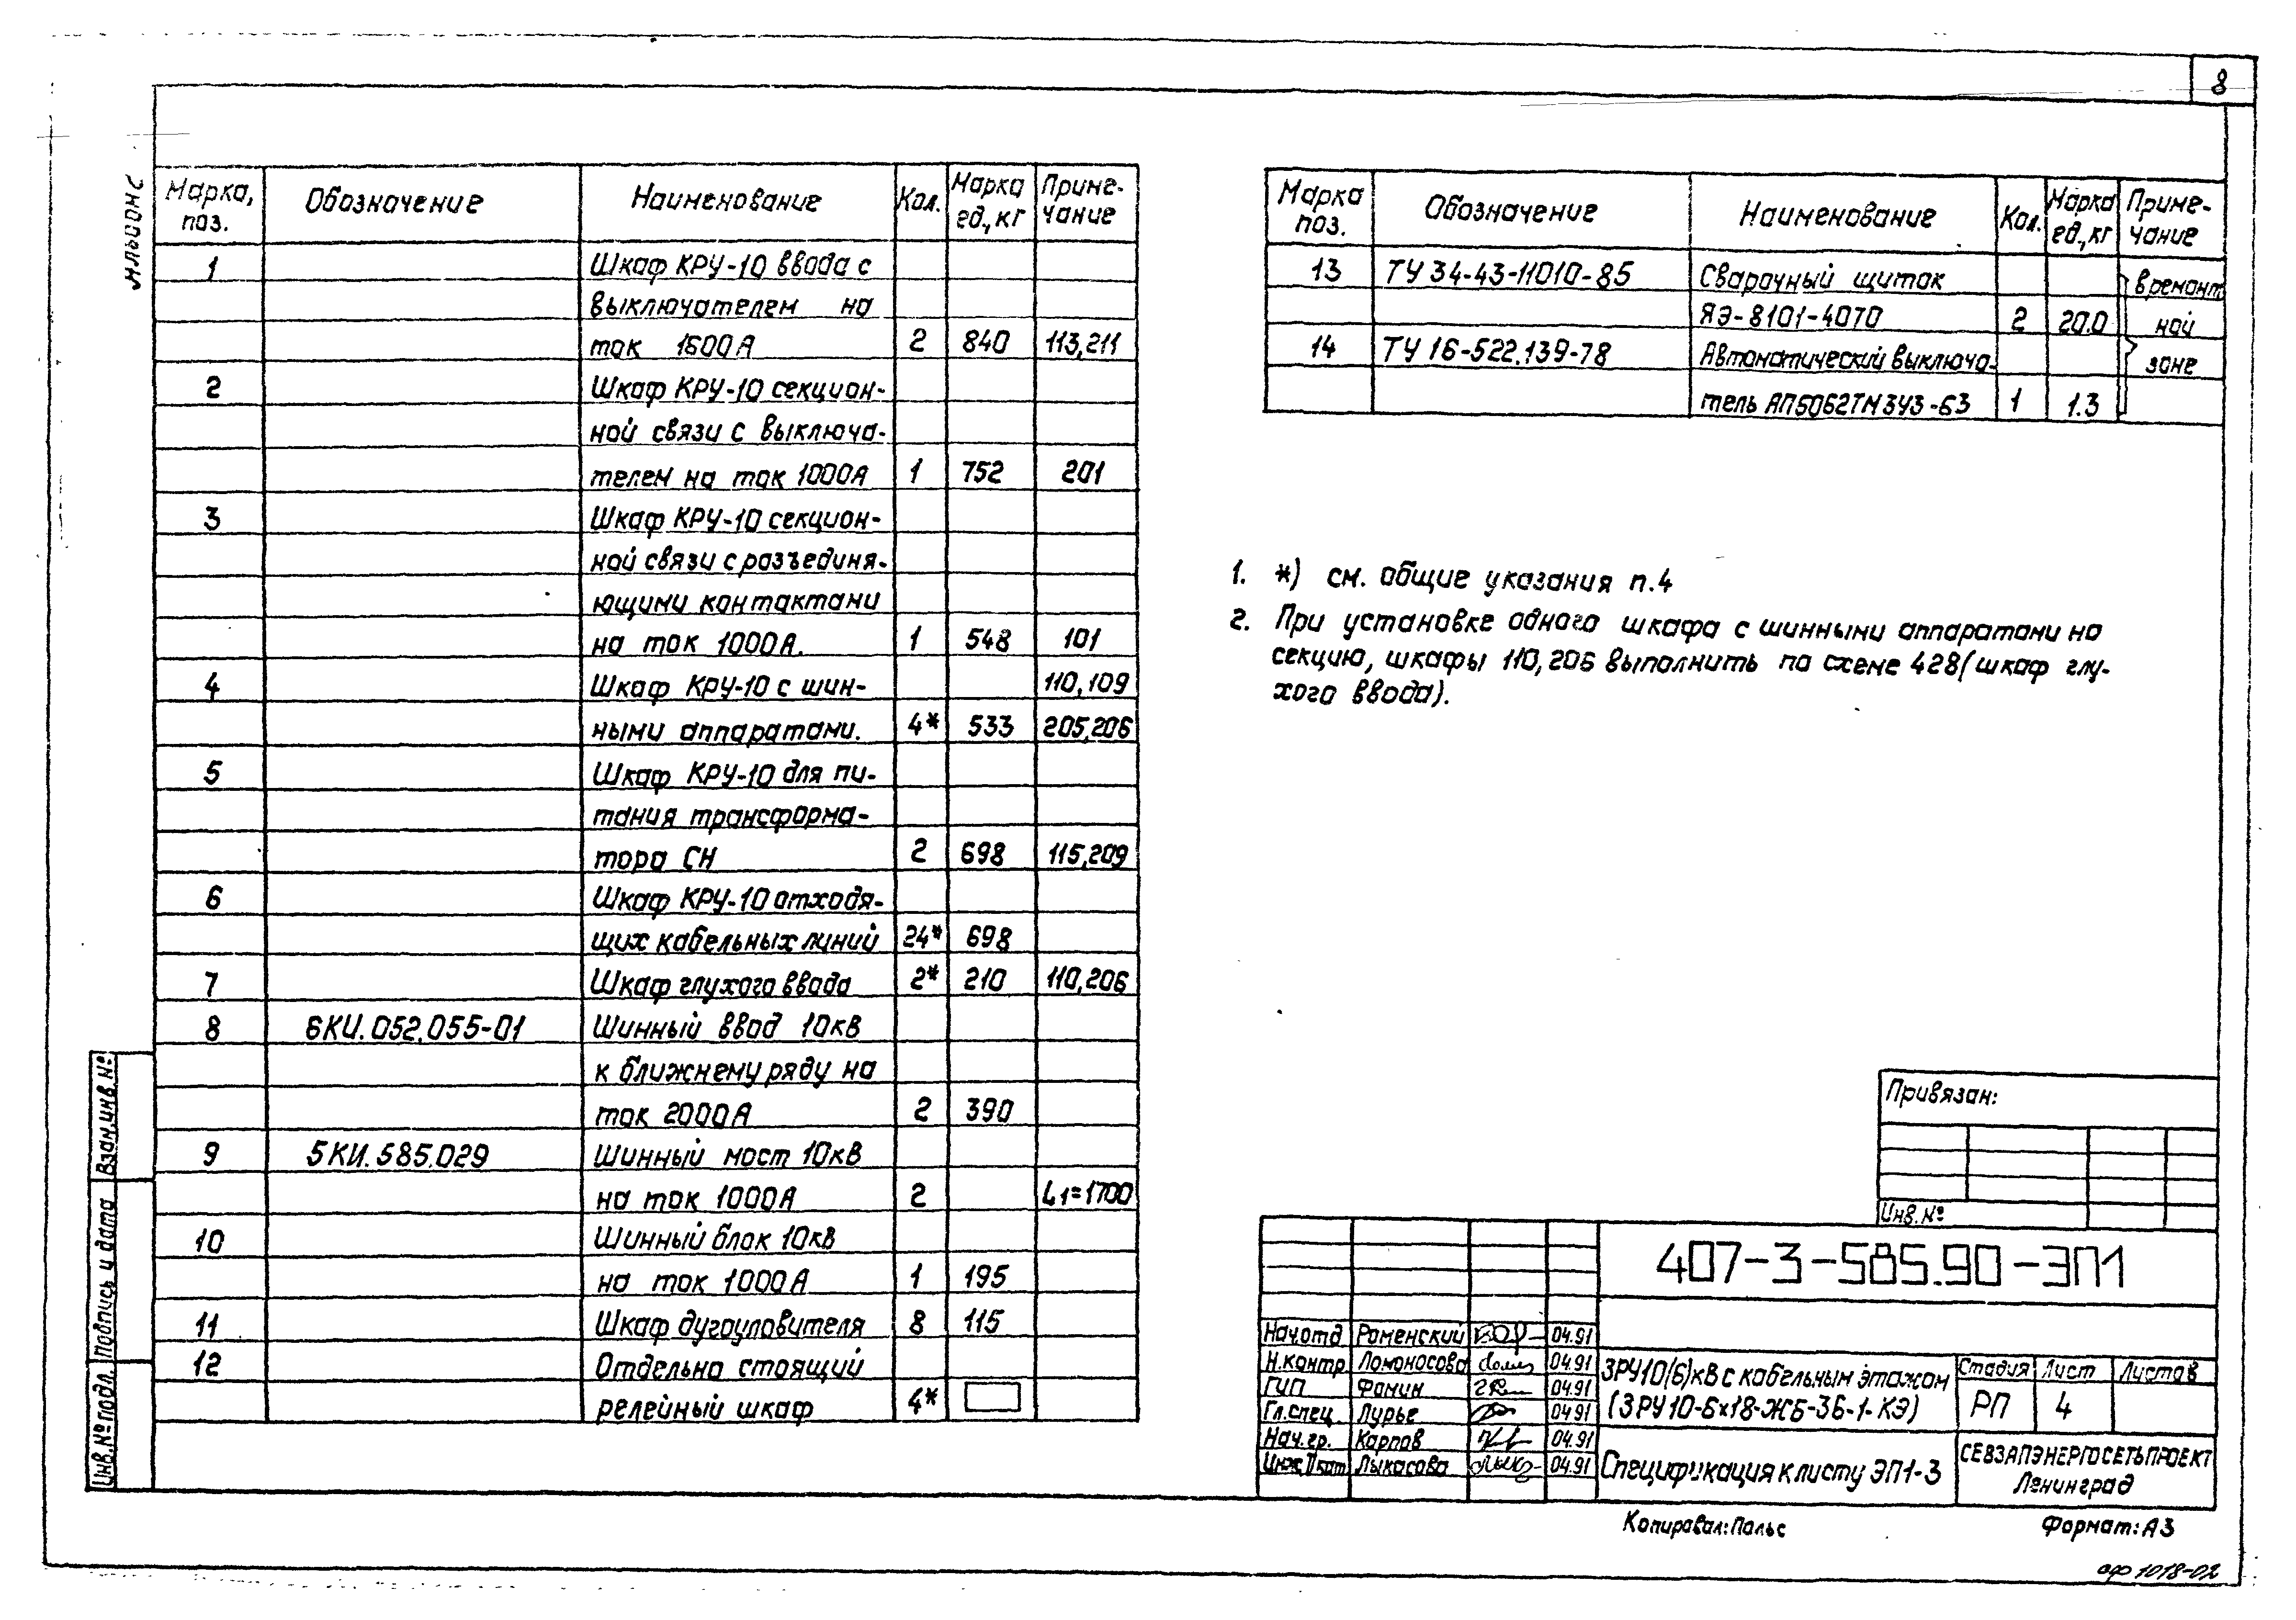 8
Альбом 2
Марка, поз. Обозначение Наименование Кол. Марка ед., кг Приме-чание
1 Шкаф КРУ-10 ввода с
выключателем на
ток 1600А 2 840 113,211
2 Шкаф КРУ-10 секцион-
ной связи с выключа-
телем на ток 1000А 1 752 201
3 Шкаф КРУ-10 секцион-
ной связи с разъединя-
ющими контактами
на ток 1000А. 1 548 101
4 Шкаф КРУ-10 с шин- 110,109
ными аппаратами. 4* 533 205,206
5 Шкаф КРУ-10 для пи-
тания трансформа-
тора СН 2 698 115,209
6 Шкаф КРУ-10 отходя-
щих кабельных линий 24* 698
7 Шкаф глухого ввода 2* 210 110,206
8 6КИ.052.055-01 Шинный ввод 10кВ
к ближнему ряду на
ток 2000А 2 390
9 5КИ.585.029 Шинный мост 10кВ
на ток 1000А 2 L1=1700
10 Шинный блок 10кВ
на ток 1000А 1 195
11 Шкаф дугоуловителя 8 115
12 Отдельно стоящий
релейный шкаф 4*
Марка поз. Обозначение Наименование Кол. Марка ед., кг Приме-чание
13 ТУ 34-43-11010-85 Сварочный щиток времонт
ЯЭ-8101-4070 2 20.0 ной
14 ТУ 16-522.139-78 Автоматический выключа- зоне
тель АП50б2ТМ3У3-63 1 1.3
1. *) см. общие указания п.4
2. При установке одного шкафа с шинными аппаратами на
секцию, шкафы 110,206 выполнить по схеме 428(шкаф глу-
хого ввода).
Привязан:
Инв.№
407-3-585.90-ЭП1
Нач.отд Роменский 04.91
Н.контр Ломоносова 04.91
ГИП Фомин 04.91
Гл.спец. Лурье 04.91
Нач.гр. Карпов 04.91
Инж.II кат Лыкасова 04.91
ЗРУ10(6)кВ с кабельным этажом
(ЗРУ10-6х18-ЖБ-36-1-КЭ)
Стадия Лист Листов
РП 4
Спецификация к листу ЭП1-3
СЕВЗАПЭНЕРГОСЕТЬПРОЕКТ
Ленинград
Инв.№ подл. Подпись и дата Взам.инв.№
Копировал: Пальс Формат: А3
оф 1018-02